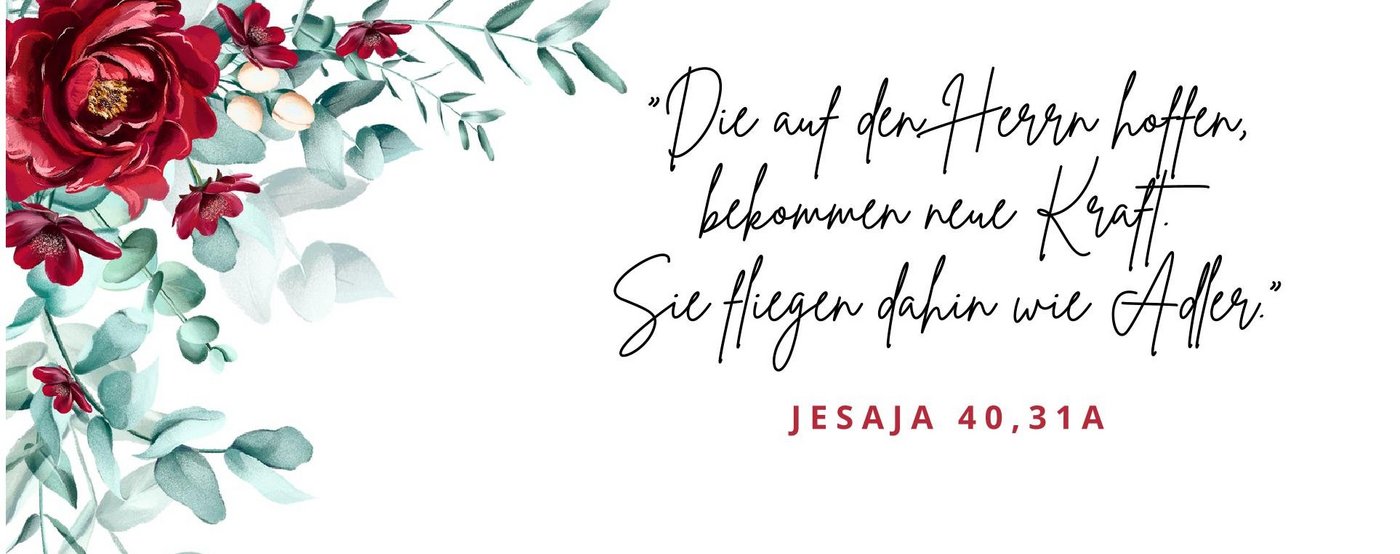 "Die auf den Herrn hoffen,
bekommen neue Kraft.
Sie fliegen dahin wie Adler."
JESAJA 40,31A